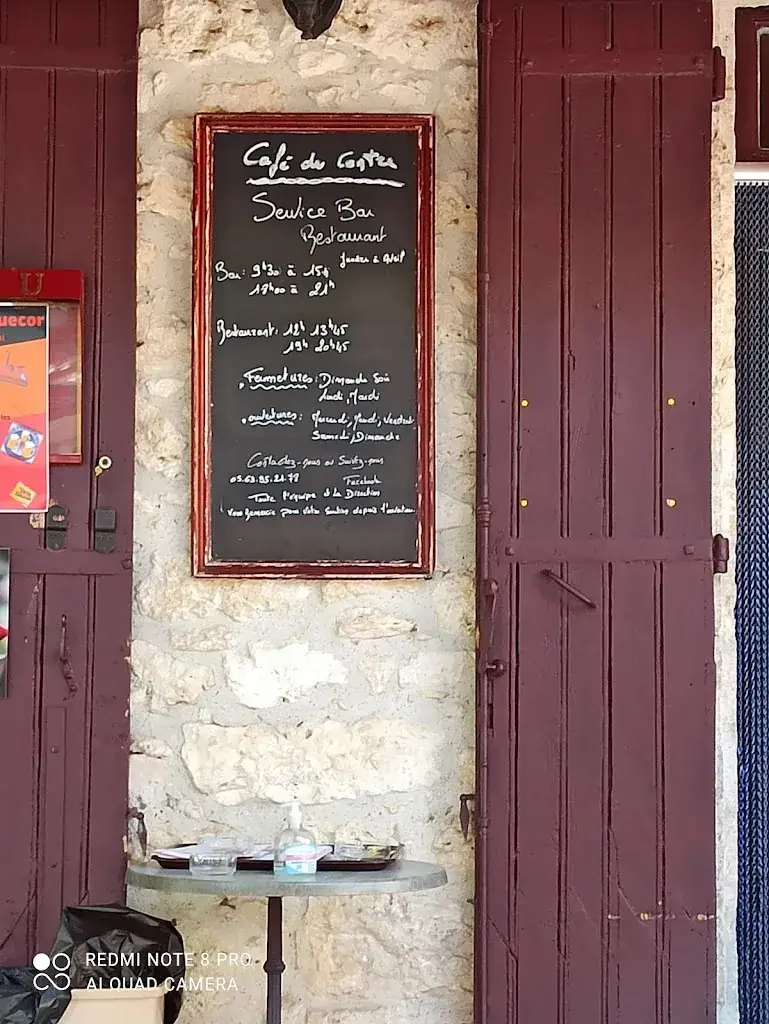 Café du Centre
Service Bar
Restaurant
Janvier à Avril
Bar: 9h30 à 15h
18h00 à 21h
Restaurant: 12h 13h45
19h 20h45
Fermetures: Dimanche Soir
Lundi, Mardi
ouvertures: Mercredi, Jeudi, Vendredi
Samedi, Dimanche
Contactez-nous ou Suivez-nous
05.63.95.21.78 Facebook
Toute l'équipe et la Direction
Vous Remercie pour votre Soutien depuis l'ouverture
U
uecor
REDMI NOTE 8 PRO
AI QUAD CAMERA